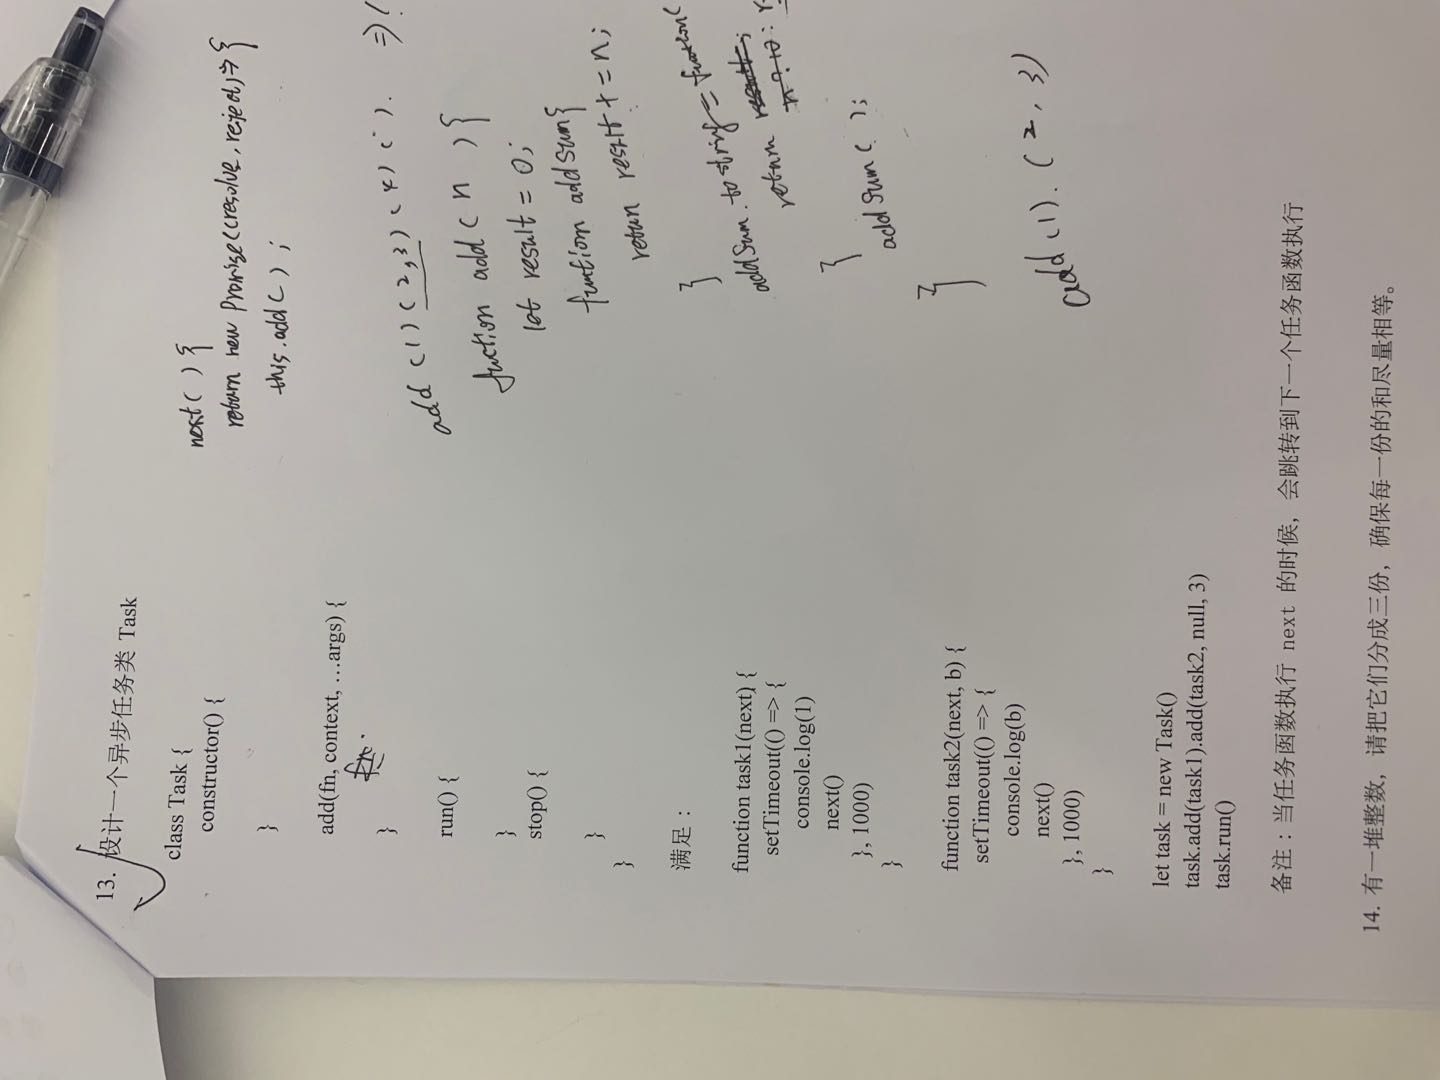 13. 设计一个异步任务类 Task
class Task {
constructor() {
}
add(fn, context, …args) {
fn.
}
run() {
}
stop() {
}
}
满足：
function task1(next) {
setTimeout(() => {
console.log(1)
next()
}, 1000)
}
function task2(next, b) {
setTimeout(() => {
console.log(b)
next()
}, 1000)
}
let task = new Task()
task.add(task1).add(task2, null, 3)
task.run()
备注：当任务函数执行 next 的时候，会跳转到下一个任务函数执行
14. 有一堆整数，请把它们分成三份，确保每一份的和尽量相等。
next() {
return new Promise((resolve, reject) => {
this.add();
add(1)(2,3)(4)( ). =>
fuction add(n ){
let result = 0;
funtion addSum{
return result += n;
}
addSum.toString = function(
return result;
n? 10:
}
addSum( );
}
add(1).(2, 3)